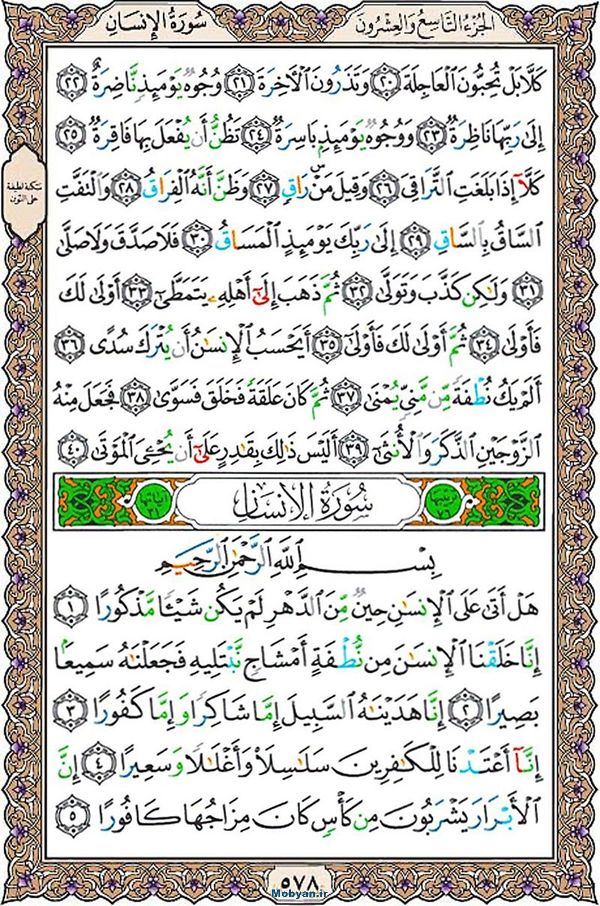 الجزء التاسع والعشرون
سورة الإنسان
كَلَّا بَلْ تُحِبُّونَ ٱلْعَاجِلَةَ ٢٠ وَتَذَرُونَ ٱلْـَٔاخِرَةَ ٢١ وُجُوهٌ يَوْمَئِذٍ نَّاضِرَةٌ ٢٢
إِلَىٰ رَبِّهَا نَاظِرَةٌ ٢٣ وَوُجُوهٌ يَوْمَئِذٍۭ بَاسِرَةٌ ٢٤ تَظُنُّ أَن يُفْعَلَ بِهَا فَاقِرَةٌ ٢٥
كَلَّآ إِذَا بَلَغَتِ ٱلتَّرَاقِىَ ٢٦ وَقِيلَ مَنْ ۜ رَاقٍ ٢٧ وَظَنَّ أَنَّهُ ٱلْفِرَاقُ ٢٨ وَٱلْتَفَّتِ
سكتة لطيفة
على النون
ٱلسَّاقُ بِٱلسَّاقِ ٢٩ إِلَىٰ رَبِّكَ يَوْمَئِذٍ ٱلْمَسَاقُ ٣٠ فَلَا صَدَّقَ وَلَا صَلَّىٰ
٣١ وَلَـٰكِن كَذَّبَ وَتَوَلَّىٰ ٣٢ ثُمَّ ذَهَبَ إِلَىٰٓ أَهْلِهِۦ يَتَمَطَّىٰٓ ٣٣ أَوْلَىٰ لَكَ
فَأَوْلَىٰ ٣٤ ثُمَّ أَوْلَىٰ لَكَ فَأَوْلَىٰٓ ٣٥ أَيَحْسَبُ ٱلْإِنسَـٰنُ أَن يُتْرَكَ سُدًى ٣٦
أَلَمْ يَكُ نُطْفَةً مِّن مَّنِىٍّ يُمْنَىٰ ٣٧ ثُمَّ كَانَ عَلَقَةً فَخَلَقَ فَسَوَّىٰ ٣٨ فَجَعَلَ مِنْهُ
ٱلزَّوْجَيْنِ ٱلذَّكَرَ وَٱلْأُنثَىٰٓ ٣٩ أَلَيْسَ ذَٰلِكَ بِقَـٰدِرٍ عَلَىٰٓ أَن يُحْـِۧىَ ٱلْمَوْتَىٰ ٤٠
سورة الإنسان
بِسْمِ ٱللَّهِ ٱلرَّحْمَـٰنِ ٱلرَّحِيمِ
هَلْ أَتَىٰ عَلَى ٱلْإِنسَـٰنِ حِينٌ مِّنَ ٱلدَّهْرِ لَمْ يَكُن شَيْـًٔا مَّذْكُورًا ١
إِنَّا خَلَقْنَا ٱلْإِنسَـٰنَ مِن نُّطْفَةٍ أَمْشَاجٍ نَّبْتَلِيهِ فَجَعَلْنَـٰهُ سَمِيعًۢا
بَصِيرًا ٢ إِنَّا هَدَيْنَـٰهُ ٱلسَّبِيلَ إِمَّا شَاكِرًا وَإِمَّا كَفُورًا ٣
إِنَّآ أَعْتَدْنَا لِلْكَـٰفِرِينَ سَلَـٰسِلَا۟ وَأَغْلَـٰلًا وَسَعِيرًا ٤ إِنَّ
ٱلْأَبْرَارَ يَشْرَبُونَ مِن كَأْسٍ كَانَ مِزَاجُهَا كَافُورًا ٥
٥٧٨
Mobyan.ir